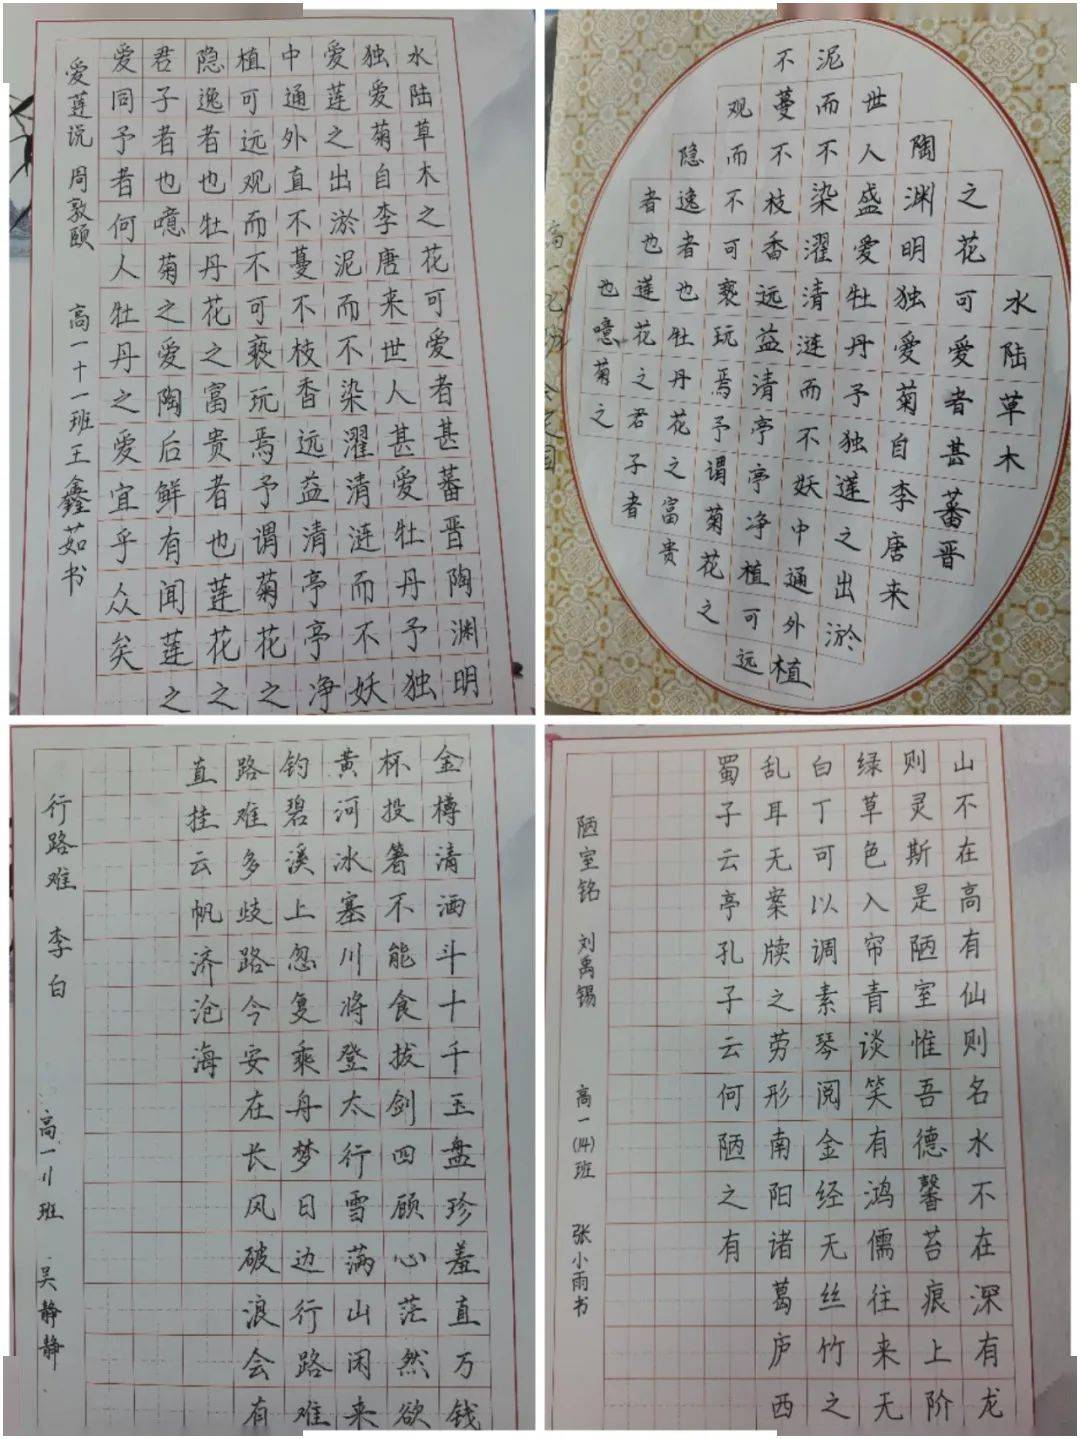 水陆草木之花可爱者甚蕃晋陶渊明
独爱菊自李唐来世人甚爱牡丹予独
爱莲之出淤泥而不染濯清涟而不妖
中通外直不蔓不枝香远益清亭亭净
植可远观而不可亵玩焉予谓菊花之
隐逸者也牡丹花之富贵者也莲花之
君子者也噫菊之爱陶后鲜有闻莲之
爱同予者何人牡丹之爱宜乎众矣
爱莲说 周敦颐 高一十一班王鑫茹书
水陆草木
之花可爱者甚蕃晋
陶渊明独爱菊自李唐来
世人盛爱牡丹予独莲之出淤
泥而不染濯清涟而不妖中通外植
不蔓不枝香远益清亭亭净植可远
观而不可亵玩焉予谓菊花之
隐逸者也牡丹花之富贵
者也莲花之君子者
也噫菊之
金樽清酒斗十千玉盘珍羞直万钱
杯投箸不能食拔剑四顾心茫然欲
黄河冰塞川将登太行雪满山闲来
钓碧溪上忽复乘舟梦日边行路难
路难多歧路今安在长风破浪会有
直挂云帆济沧海
行路难 李白 高一11班 吴静静
山不在高有仙则名水不在深有龙
则灵斯是陋室惟吾德馨苔痕上阶
绿草色入帘青谈笑有鸿儒往来无
白丁可以调素琴阅金经无丝竹之
乱耳无案牍之劳形南阳诸葛庐西
蜀子云亭孔子云何陋之有
陋室铭 刘禹锡 高一(14)班 张小雨书